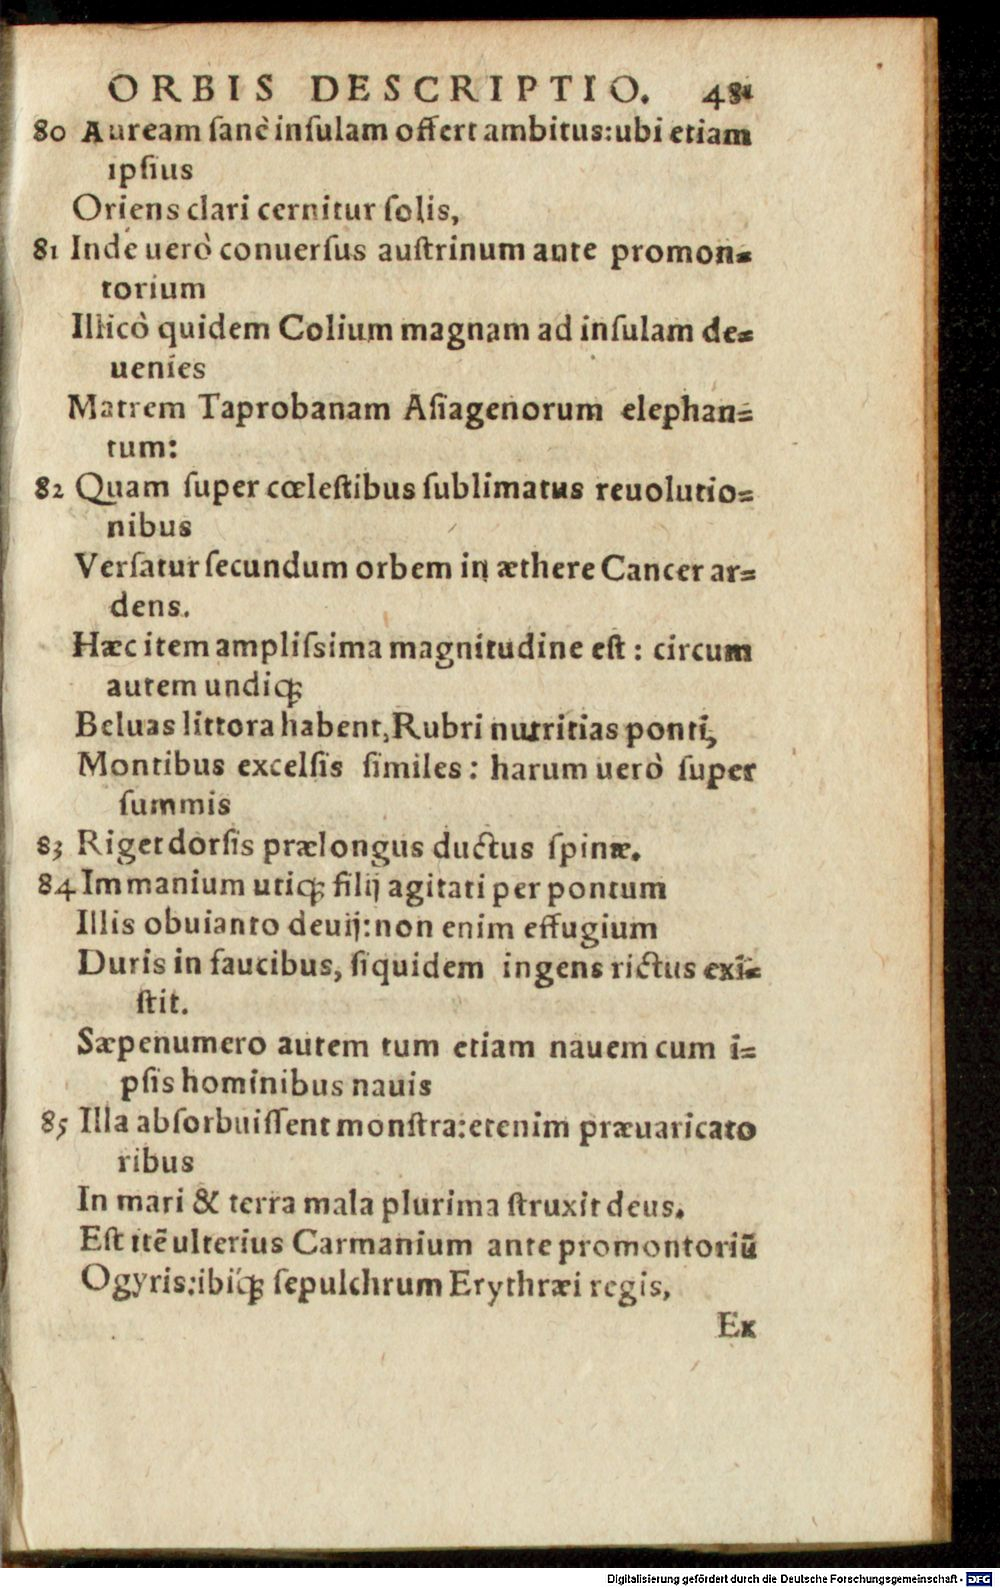 ORBIS DESCRIPTIO. 481
80 Auream sanè insulam offert ambitus: ubi etiam
ipsius
Oriens clari cernitur solis,
81 Inde uerò conuersus austrinum ante promon=
torium
Illicò quidem Colium magnam ad insulam de=
uenies
Matrem Taprobanam Asiagenorum elephan=
tum:
82 Quam super cœlestibus sublimatus reuolutio=
nibus
Versatur secundum orbem in æthere Cancer ar=
dens.
Hæc item amplissima magnitudine est : circum
autem undiq;
Beluas littora habent, Rubri nutritias ponti,
Montibus excelsis similes : harum uerò super
summis
83 Riget dorsis prælongus ductus spinæ.
84 Immanium utiq; filij agitati per pontum
Illis obuianto deuij: non enim effugium
Duris in faucibus, siquidem ingens rictus exi=
stit.
Sæpenumero autem tum etiam nauem cum i=
psis hominibus nauis
85 Illa absorbuissent monstra: etenim præuaricato
ribus
In mari & terra mala plurima struxit deus.
Est itẽ ulterius Carmanium ante promontoriũ
Ogyris: ibiq; sepulchrum Erythræi regis,
Ex
Digitalisierung gefördert durch die Deutsche Forschungsgemeinschaft - DFG